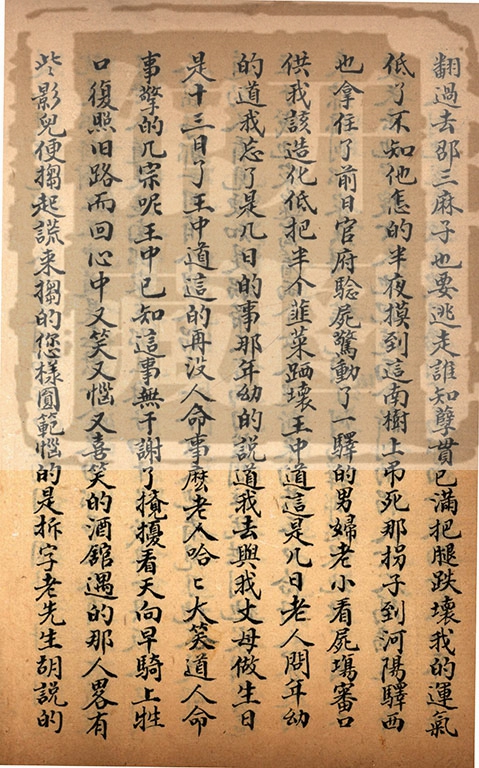 翻過去邵三麻子也要逃走誰知孽貫已滿把腿跌壞我的運氣
低了不知他怎的半夜摸到這南樹上吊死那拐子到河陽驛西
也拿住了前日官府騐屍驚動了一驛的男婦老小看屍塲審口
供我該造化低把半个韮菜畦壞王中道這是几日老人問年幼
的道我忘了是几日的事那年幼的說道我去與我丈母做生日
是十三日了王中道這的再沒人命事麽老人哈〻大笑道人命
事擎的几宗呢王中已知這事無干謝了攪擾看天向早騎上牲
口復照旧路而回心中又笑又惱又喜笑的酒舘遇的那人畧有
些影兒便搊起謊來搊的恁樣圓範惱的是拆字老先生胡說的